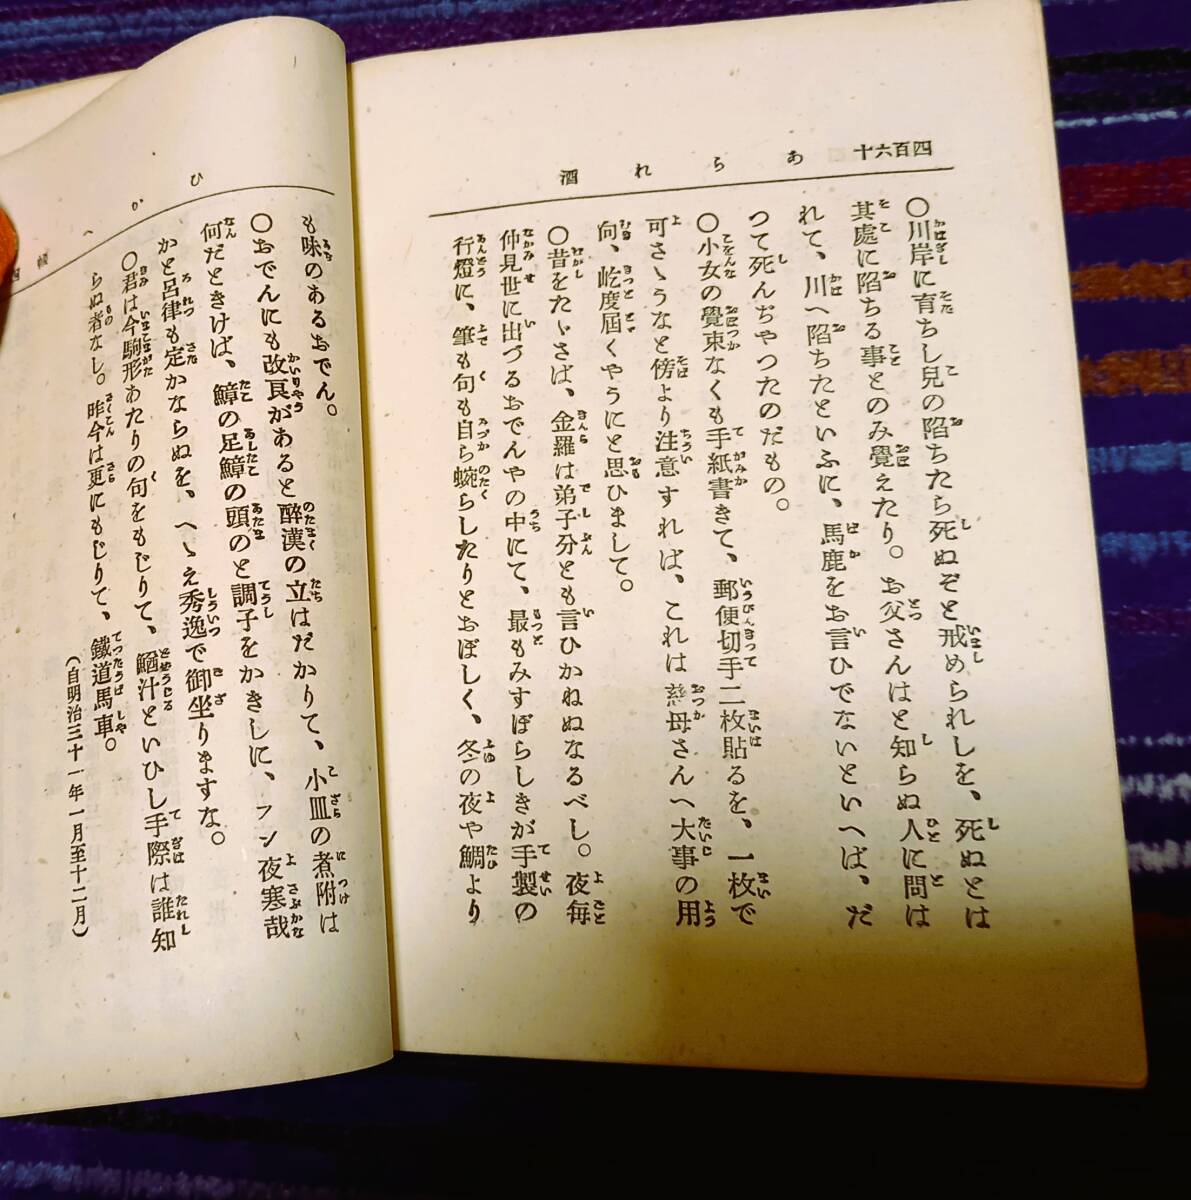 四百六十
あられ酒
〇川岸に育ちし兒の陷ちたら死ぬぞと戒められしを、死ぬとは
其處に陷ちる事とのみ覺えたり。お父さんはと知らぬ人に問は
れて、川へ陷ちたといふに、馬鹿をお言ひでないといへば、だ
つて死んぢやつたのだもの。
〇小女の覺束なくも手紙書きて、郵便切手二枚貼るを、一枚で
可さゝうなと傍より注意すれば、これは慈母さんへ大事の用
向、屹度屆くやうにと思ひまして。
〇昔をたゞさば、金羅は弟子分とも言ひかねぬなるべし。夜毎
仲見世に出づるおでんやの中にて、最もみすぼらしきが手製の
行燈に、筆も句も自ら蜿らしたりとおぼしく、冬の夜や鯛より
ひかへ帳
も味のあるおでん。
〇おでんにも改良があると醉漢の立はだかりて、小皿の煮附は
何だときけば、鱆の足鱆の頭のと調子をかきしに、フン夜寒哉
かと呂律も定かならぬを、へゝえ秀逸で御坐りますな。
〇君は今駒形あたりの句をもじりて、鰌汁といひし手際は誰知
らぬ者なし。昨今は更にもじりて、鐵道馬車。
（自明治三十一年一月至十二月）